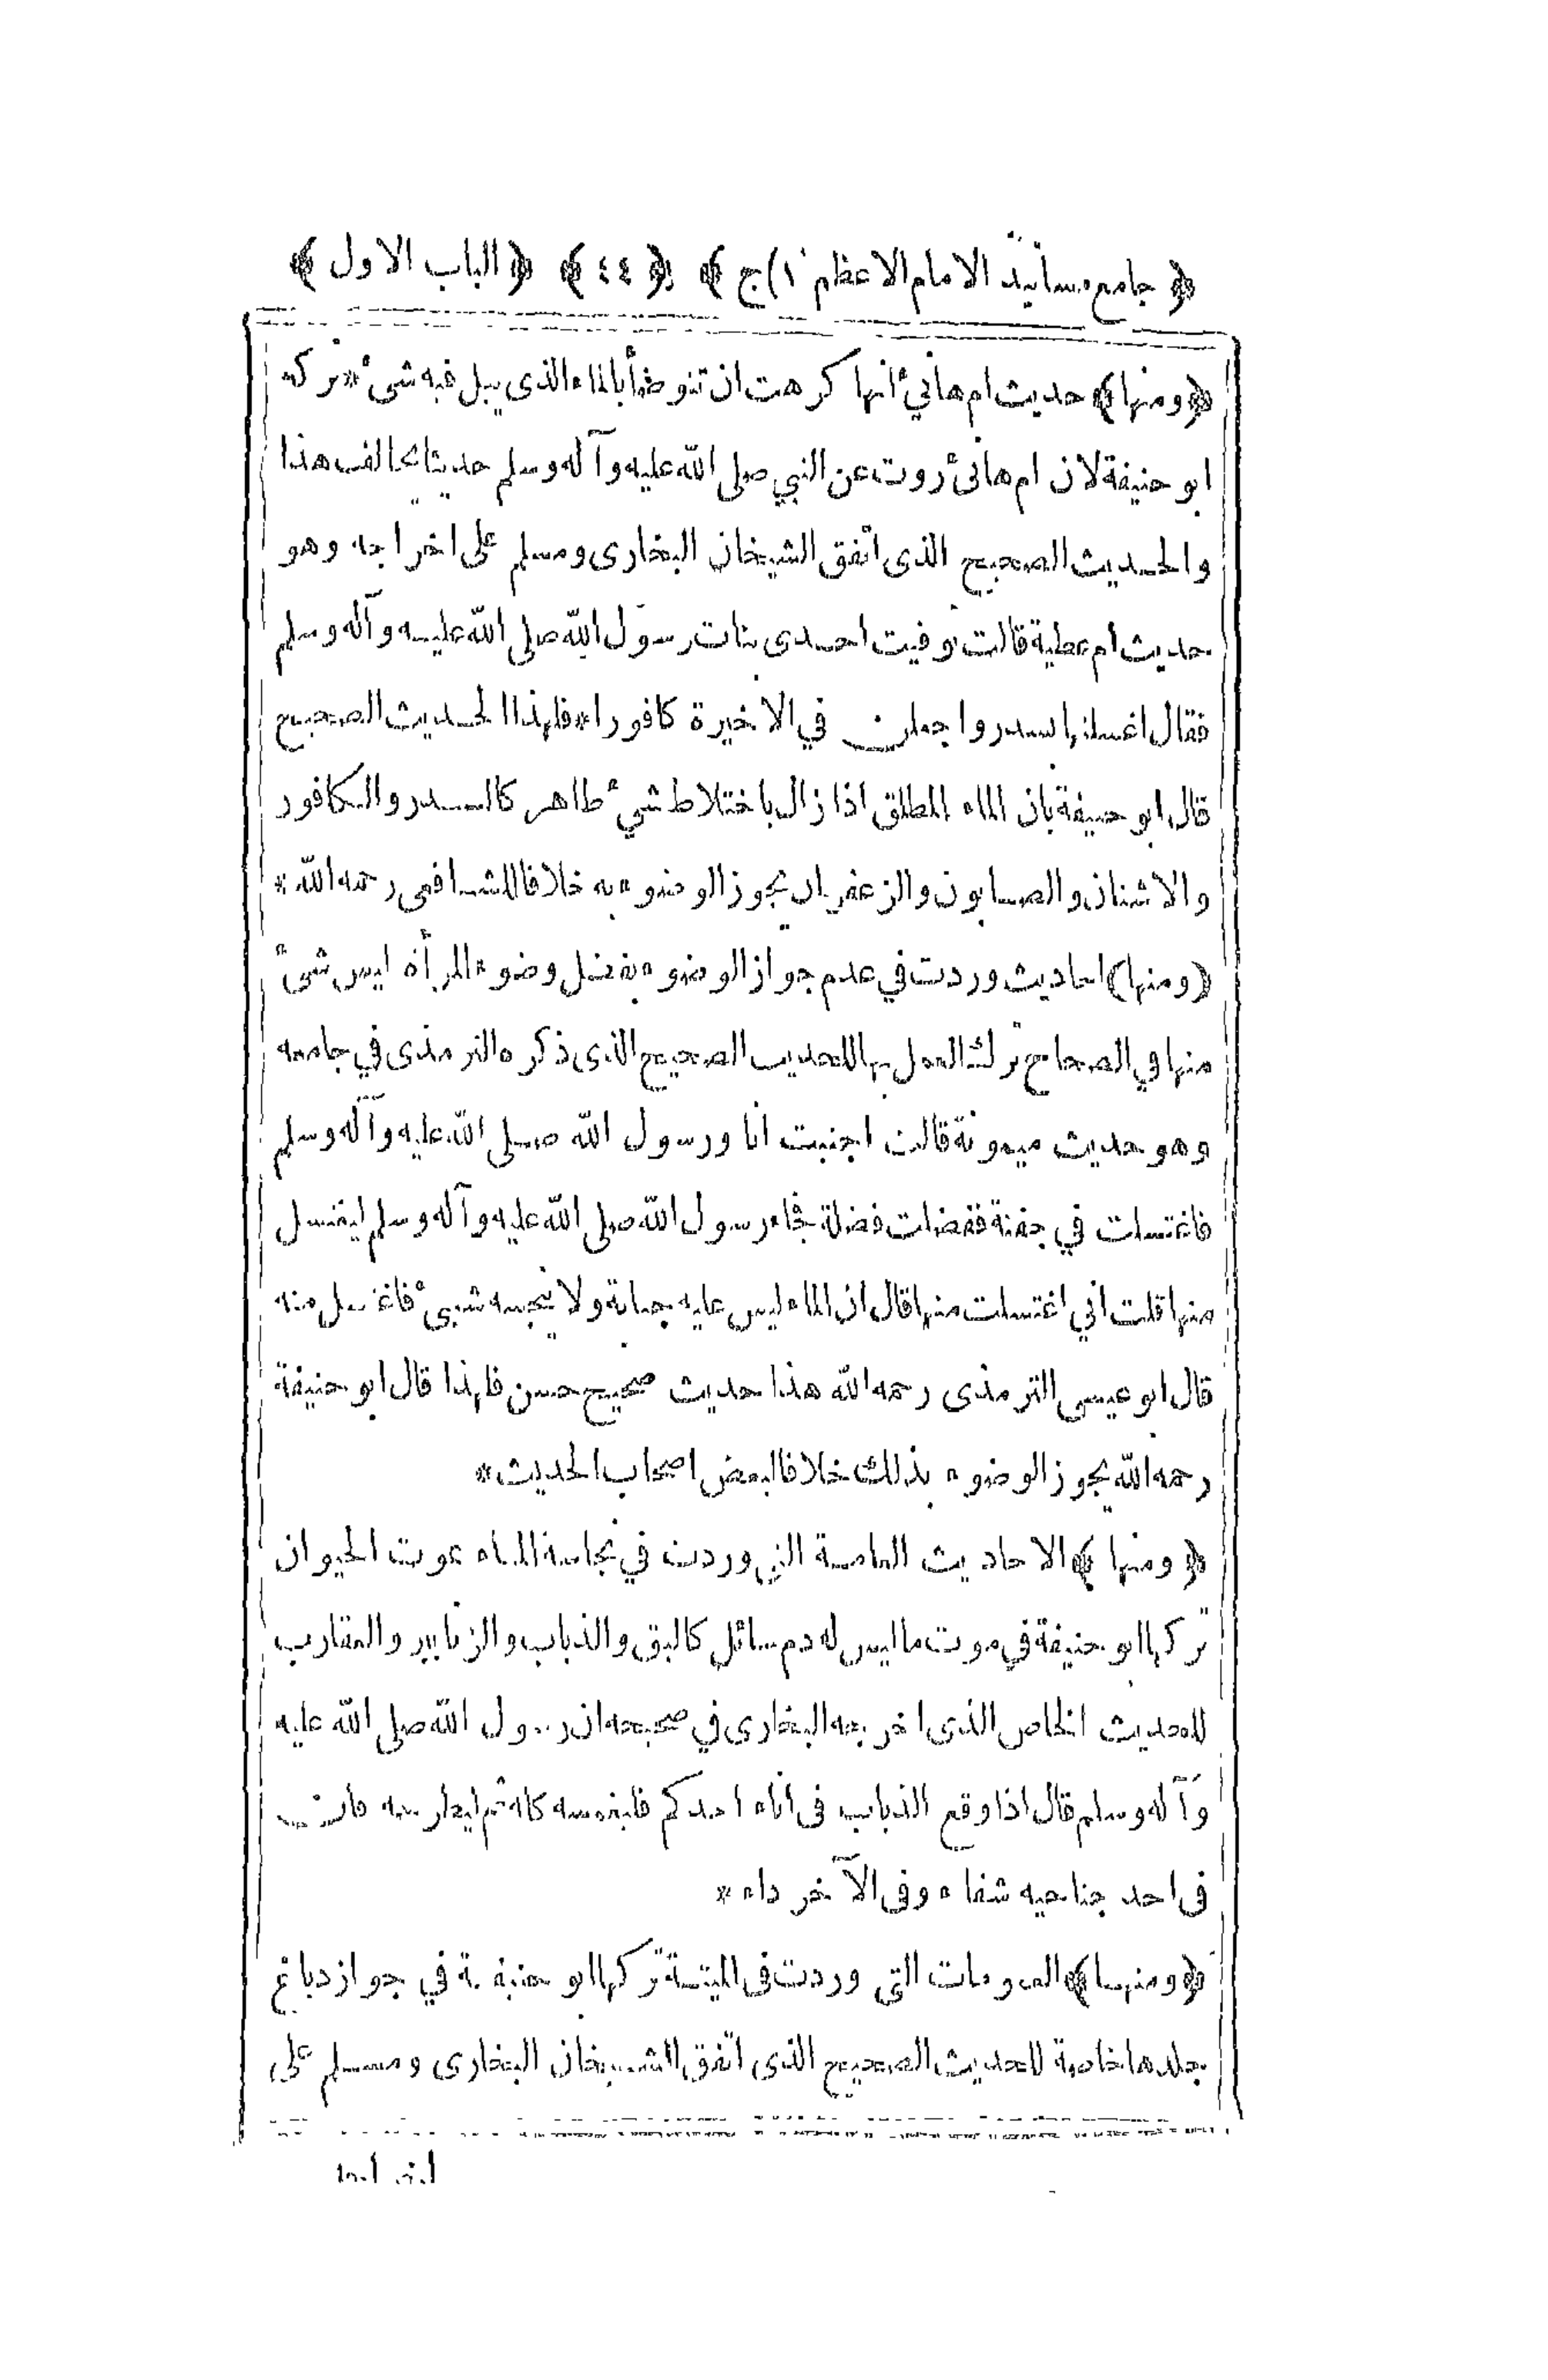 ﴿ جامع مسانيد الامام الاعظم (١) ج ﴾ ﴿ ٤٤ ﴾ ﴿ الباب الاول ﴾
﴿ومنها﴾ حديث ام هانئ انها كرهت ان تتوضأ بالماء الذى يبل فيه شئ * تركه
ابو حنيفة لان ام هانئ روت عن النبي صلى الله عليه وآله وسلم حديثا يخالف هذا
والحديث الصحيح الذى اتفق الشيخان البخارى ومسلم على اخراجه وهو
حديث ام عطية قالت توفيت احدى بنات رسول الله صلى الله عليه وآله وسلم
فقال اغسلنها بسدر واجعلن في الاخيرة كافورا * فلهذا الحديث الصحيح
قال ابو حنيفة بان الماء المطلق اذا زال باختلاط شئ طاهر كالسدر والكافور
والاشنان والصابون والزعفران يجوز الوضوء به خلافا للشافعى رحمه الله *
(ومنها) احاديث وردت في عدم جواز الوضوء بفضل وضوء المرأة ليس شئ
منها في الصحاح ترك العمل بها للحديث الصحيح الذى ذكره الترمذى في جامعه
وهو حديث ميمونة قالت اجنبت انا ورسول الله صلى الله عليه وآله وسلم
فاغتسلت في جفنة ففضلت فضلة فجاء رسول الله صلى الله عليه وآله وسلم ليغتسل
منها قلت انى اغتسلت منها قال ان الماء ليس عليه جنابة ولا ينجسه شئ فاغتسل منه
قال ابو عيسى الترمذى رحمه الله هذا حديث صحيح حسن فلهذا قال ابو حنيفة
رحمه الله يجوز الوضوء بذلك خلافا لبعض اصحاب الحديث *
﴿ ومنها ﴾ الاحاديث العامة التى وردت في نجاسة الماء بموت الحيوان
تركها ابو حنيفة في موت ما ليس له دم سائل كالبق والذباب والزنابير والعقارب
للحديث الخاص الذى اخرجه البخارى في صحيحه ان رسول الله صلى الله عليه
وآله وسلم قال اذا وقع الذباب فى اناء احدكم فليغمسه كله ثم ليطرحه فان
فى احد جناحيه شفاء وفى الآخر داء *
﴿ومنها﴾ العمومات التى وردت فى الميتة تركها ابو حنيفة في جواز دباغ
جلدها خاصة للحديث الصحيح الذى اتفق الشيخان البخارى ومسلم على